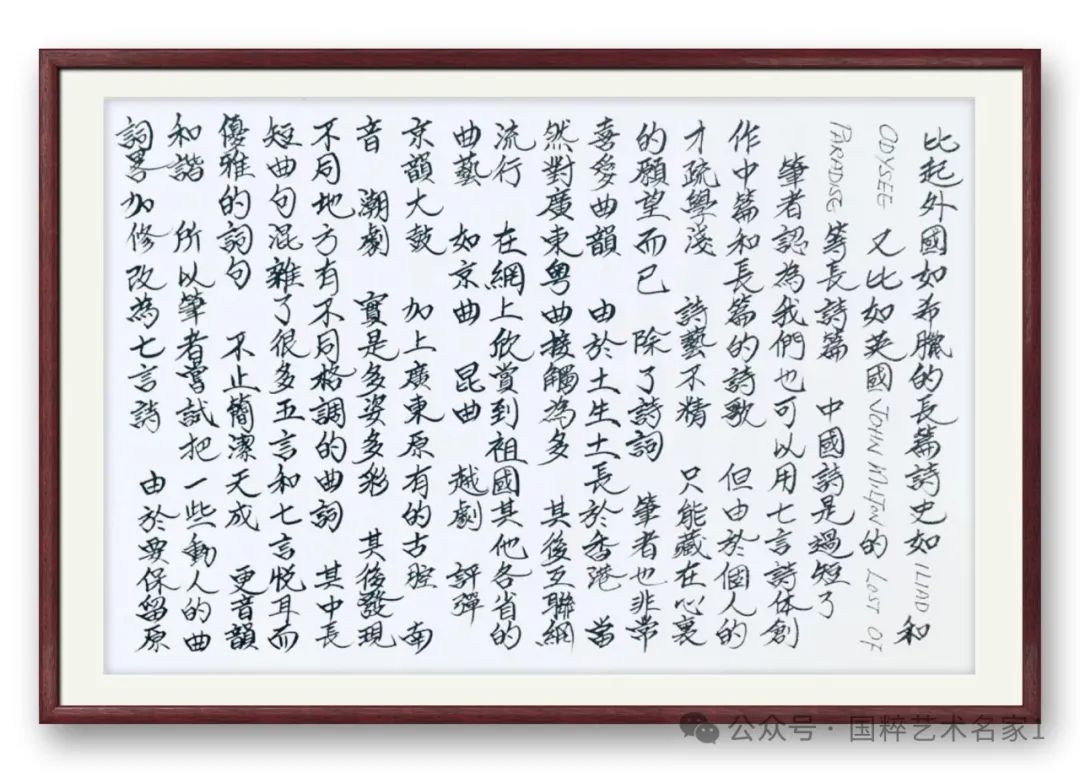 比起外國如希臘的長篇詩史如 ILIAD 和
ODYSEE 又比如英國 JOHN MILTON 的 LOST OF
PARADISE 等長詩篇 中國詩是過短了
筆者認為我們也可以用七言詩体創
作中篇和長篇的詩歌 但由於個人的
才疏學淺 詩藝不精 只能藏在心裏
的願望而已 除了詩詞 筆者也非常
喜愛曲韻 由於土生土長於香港 當
然對廣東粤曲接觸為多 其後互聯網
流行 在網上欣賞到祖國其他各省的
曲藝 如京曲 昆曲 越劇 評彈
京韻大鼓 加上廣東原有的古腔 南
音 潮劇 實是多姿多彩 其後發現
不同地方有不同格調的曲詞 其中長
短曲句混雜了很多五言和七言悅耳而
優雅的詞句 不止簡潔天成 更音韻
和諧 所以筆者嘗試把一些動人的曲
詞畧加修改為七言詩 由於要保留原
公众号·国粹艺术名家1